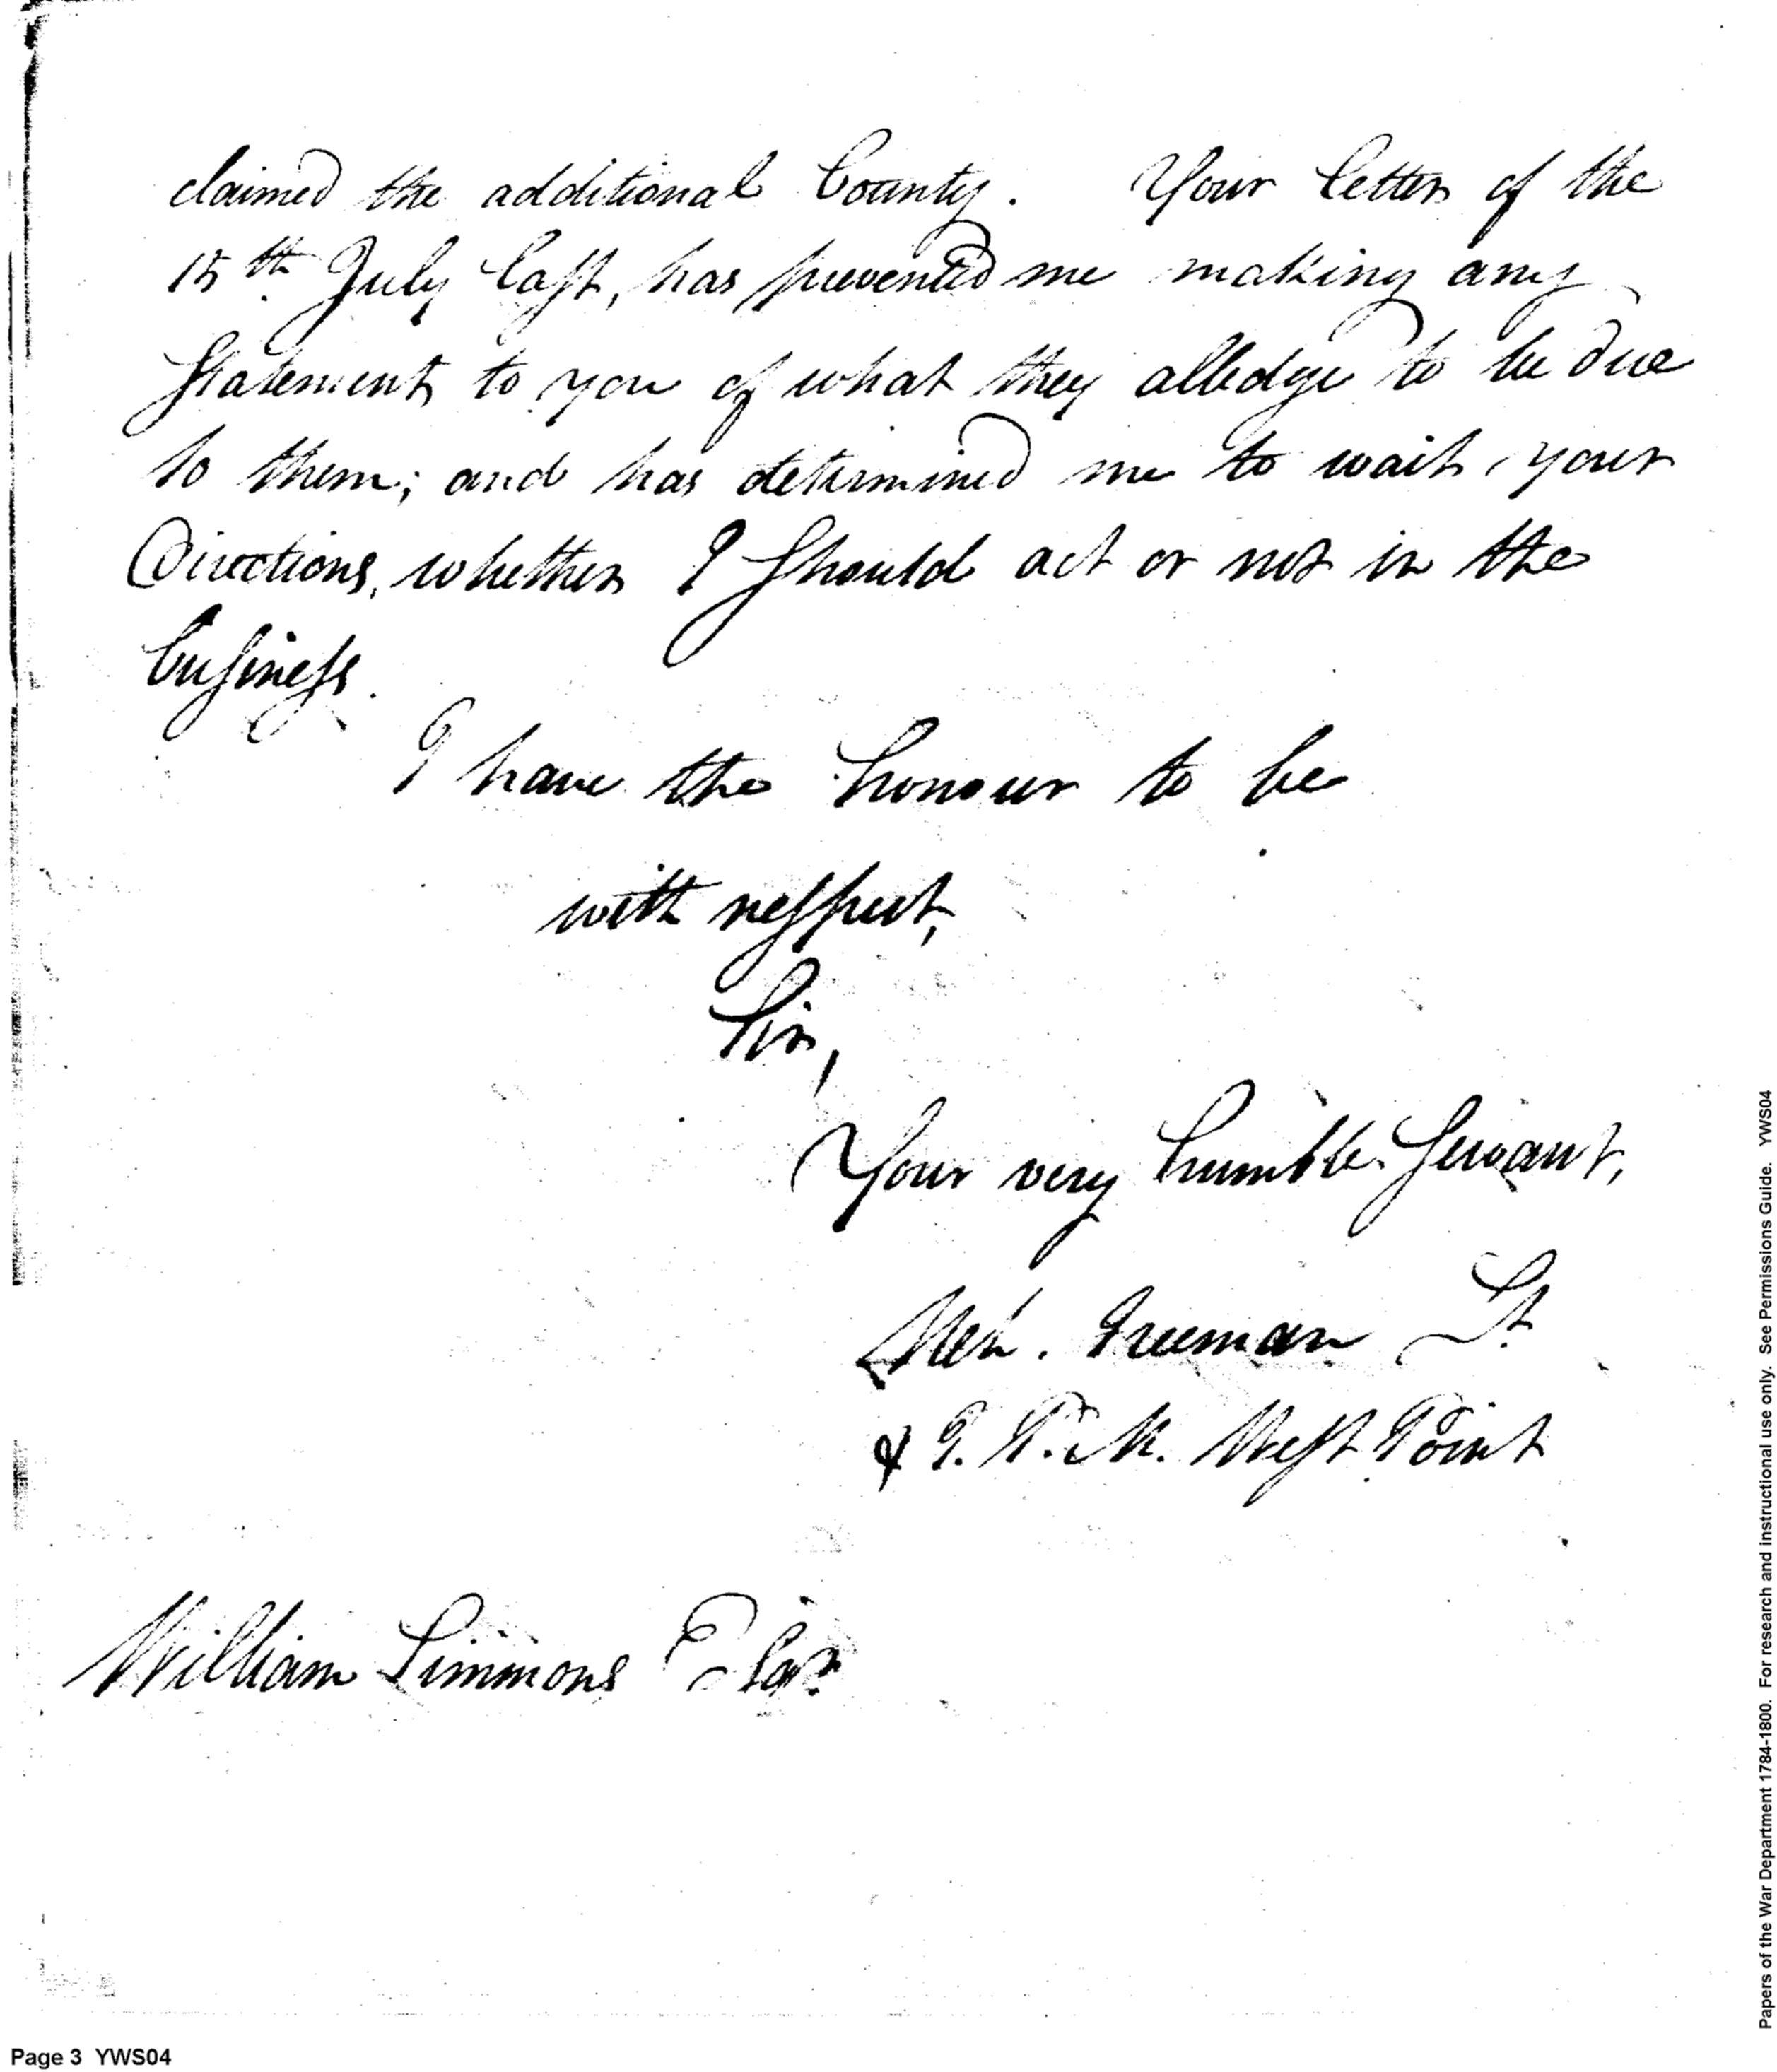 claimed the additional Bounty. Your letter of the
15th July last, has prevented me making any
Statement to you of what they alledge to be due
to them; and has determined me to wait your
Directions, whether I should act or not in the
business.
I have the honour to be
with respect,
Sir,
Your very humble Servant,
Neh. Freeman Lt
& P. M. West Point
William Simmons Esqr
Page 3 YWS04
Papers of the War Department 1784-1800. For research and instructional use only. See Permissions Guide. YWS04